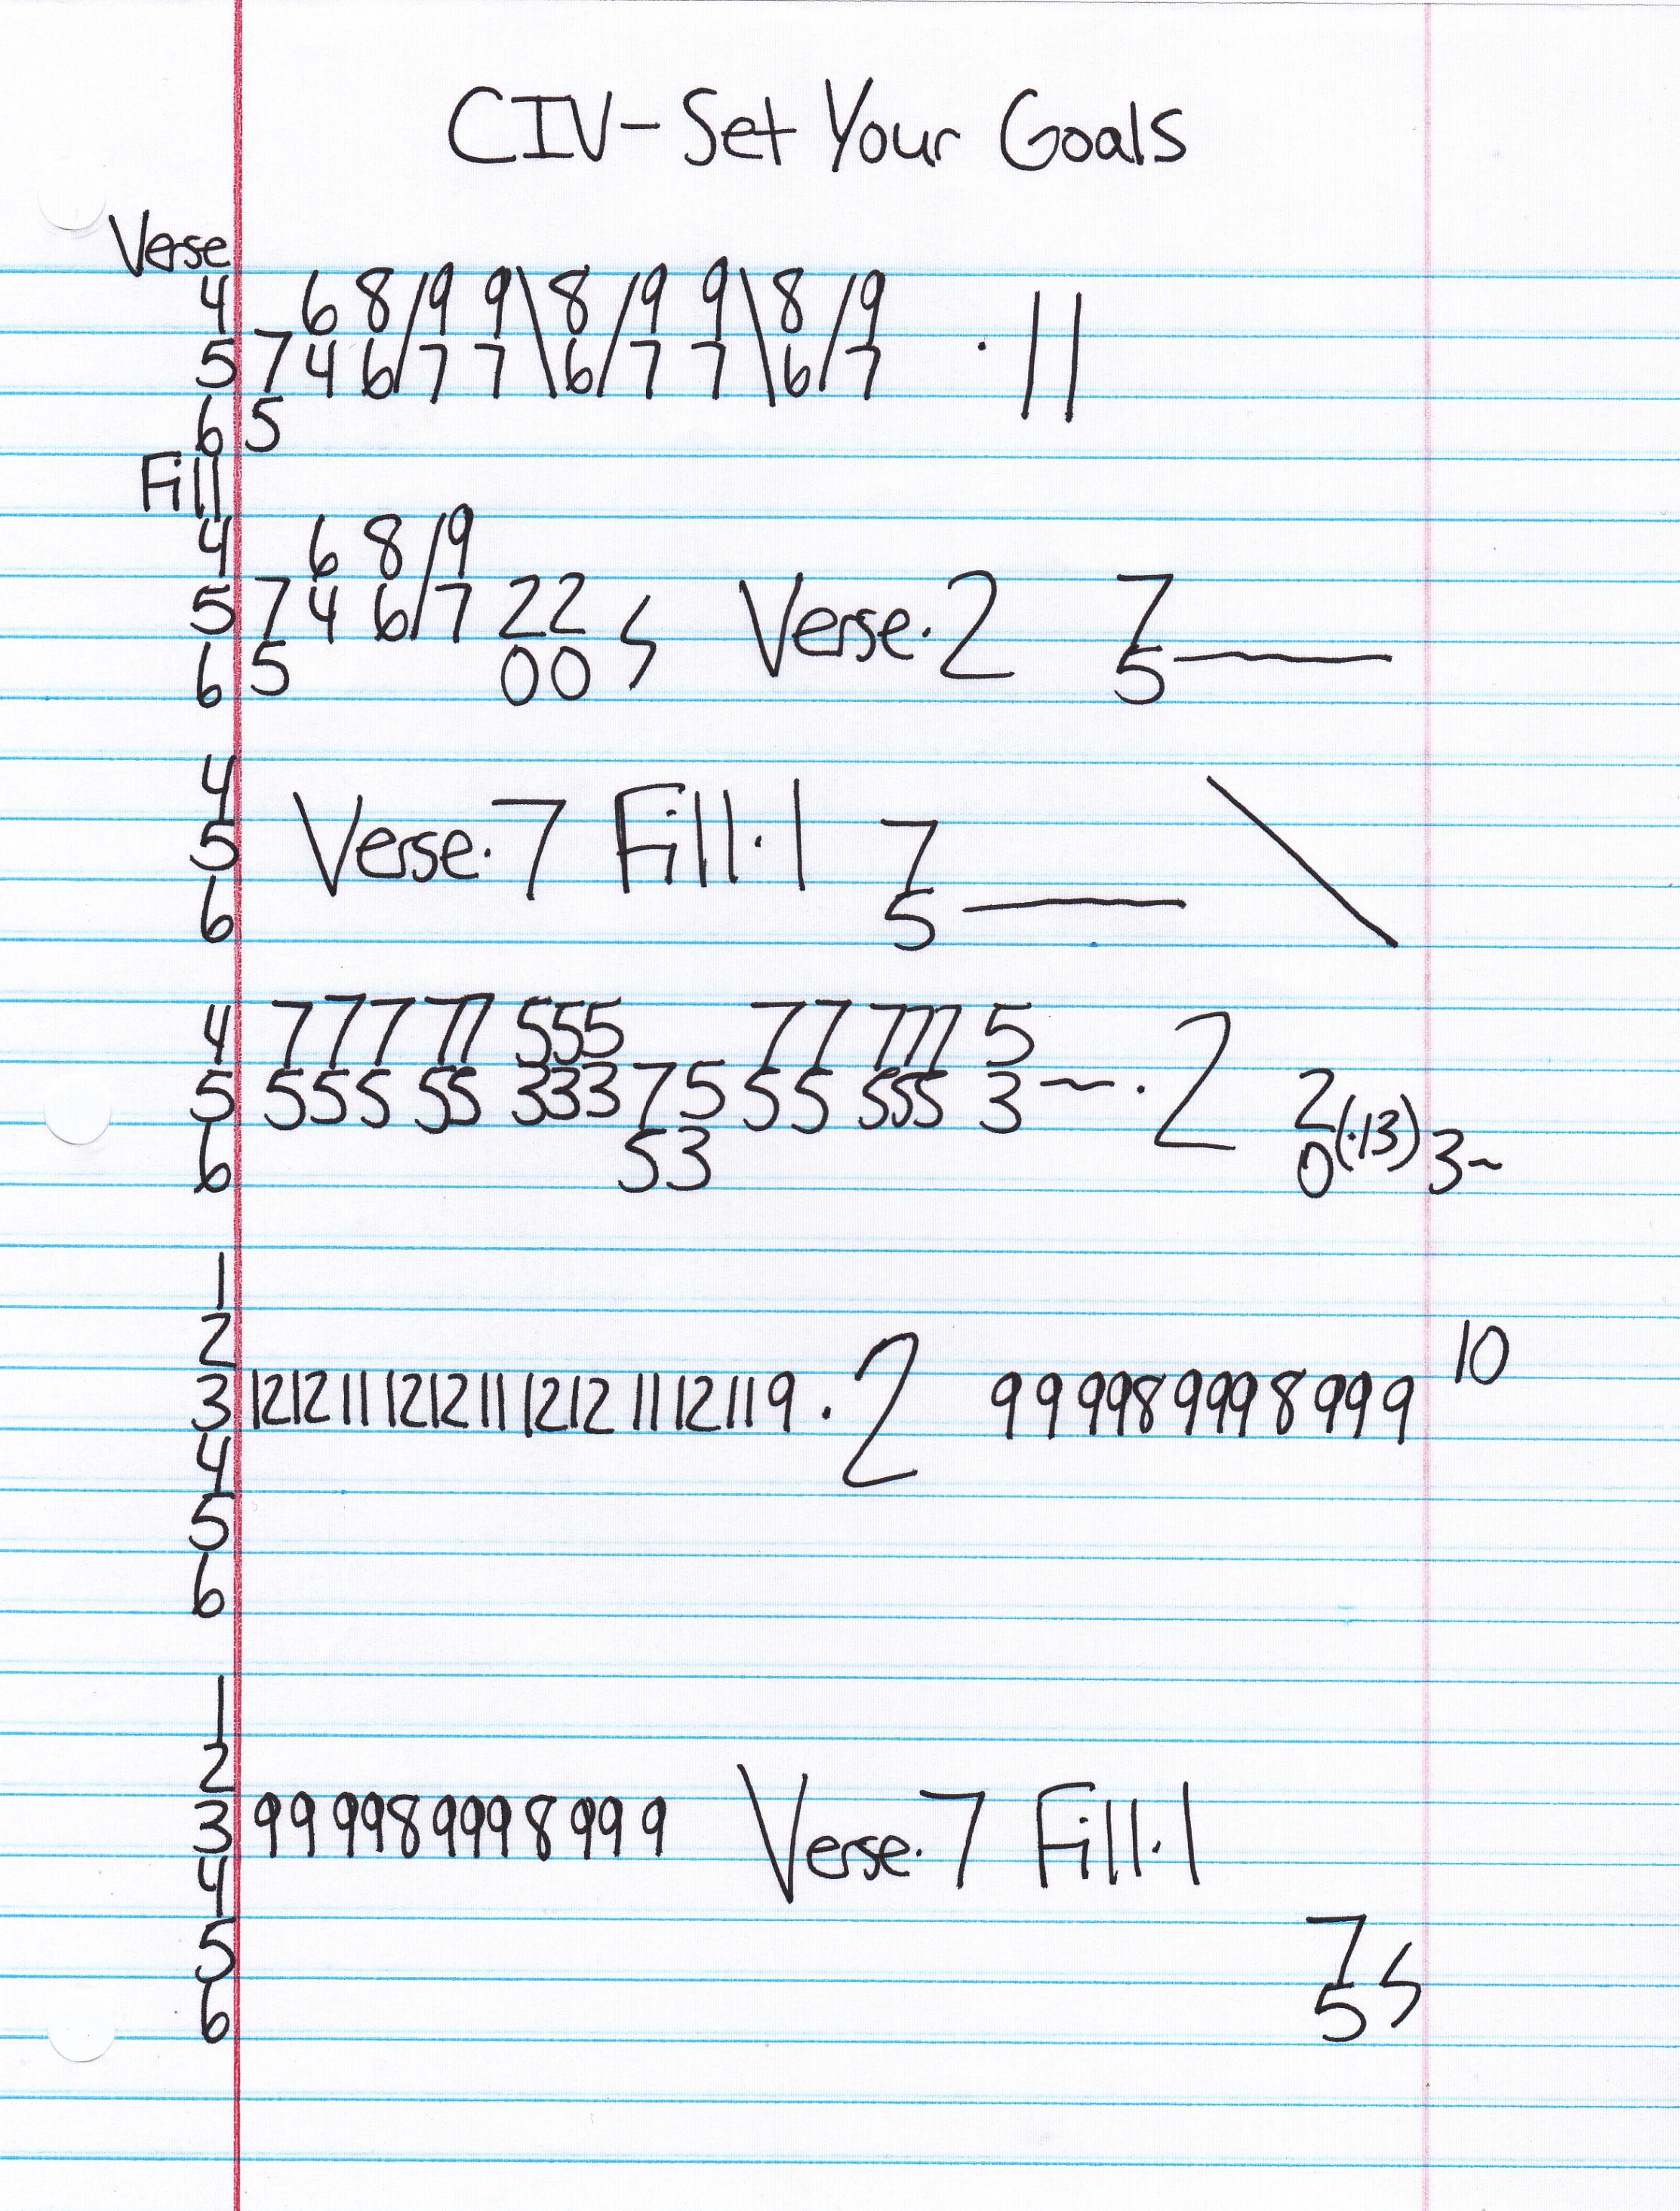 CIV-Set Your Goals
Verse
4 6 8/9 9\8/9 9\8/9
5 7 4 6/7 7\6/7 7\6/7 ·11
6 5
Fill
4 6 8/9
5 7 4 6/7 22 Verse·2 7
6 5 00 5
4
5 Verse·7 Fill·1 7
6 5
4 7 7 7 77 555 7 7 777 5
5 5 5 5 55 333 7 5 5 5 555 3~ ·2 2
6 5 3 0(·13) 3~
1
2 10
3 12 12 11 12 12 11 12 12 11 12 11 9 ·2 9 9 9 9 8 9 9 9 8 9 9 9
4
5
6
1
2
3 9 9 9 9 8 9 9 9 8 9 9 9 Verse·7 Fill·1
4
5 7
6 5